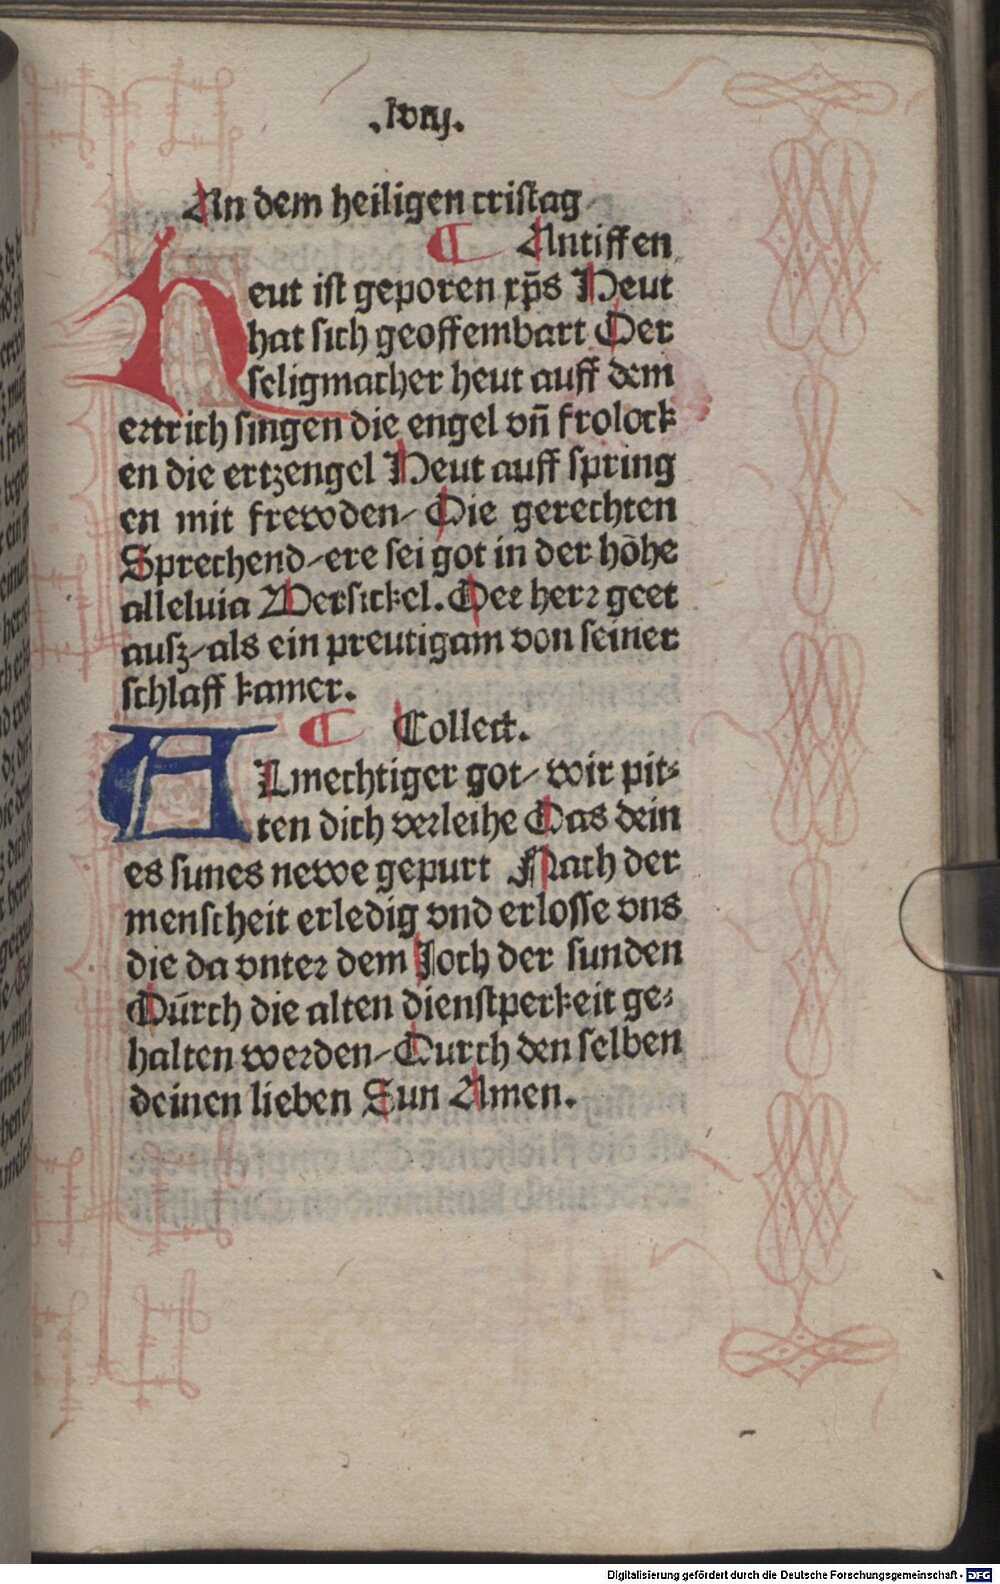 .lviij.
An dem heiligen cristag
¶ Antiffen
Heut ist geporen xp̄s Heut
hat sich geoffembart Der
seligmacher heut auff dem
ertrich singen die engel vn̄ frolock
en die ertzengel Heut auff spring
en mit frewden/ Die gerechten
Sprechend/ere sei got in der hōhe
alleluia Versickel. Der herr geet
ausz/als ein preutigam von seiner
schlaff kamer.
¶ Collect.
ALmechtiger got/ wir pit⸗
ten dich verleihe Das dein
es sunes newe gepurt Nach der
menscheit erledig vnd erlosse vns
die da vnter dem Joch der sunden
Dūrch die alten dienstperkeit ge⸗
halten werden/Durch den selben
deinen lieben Sun Amen.
Digitalisierung gefördert durch die Deutsche Forschungsgemeinschaft - DFG